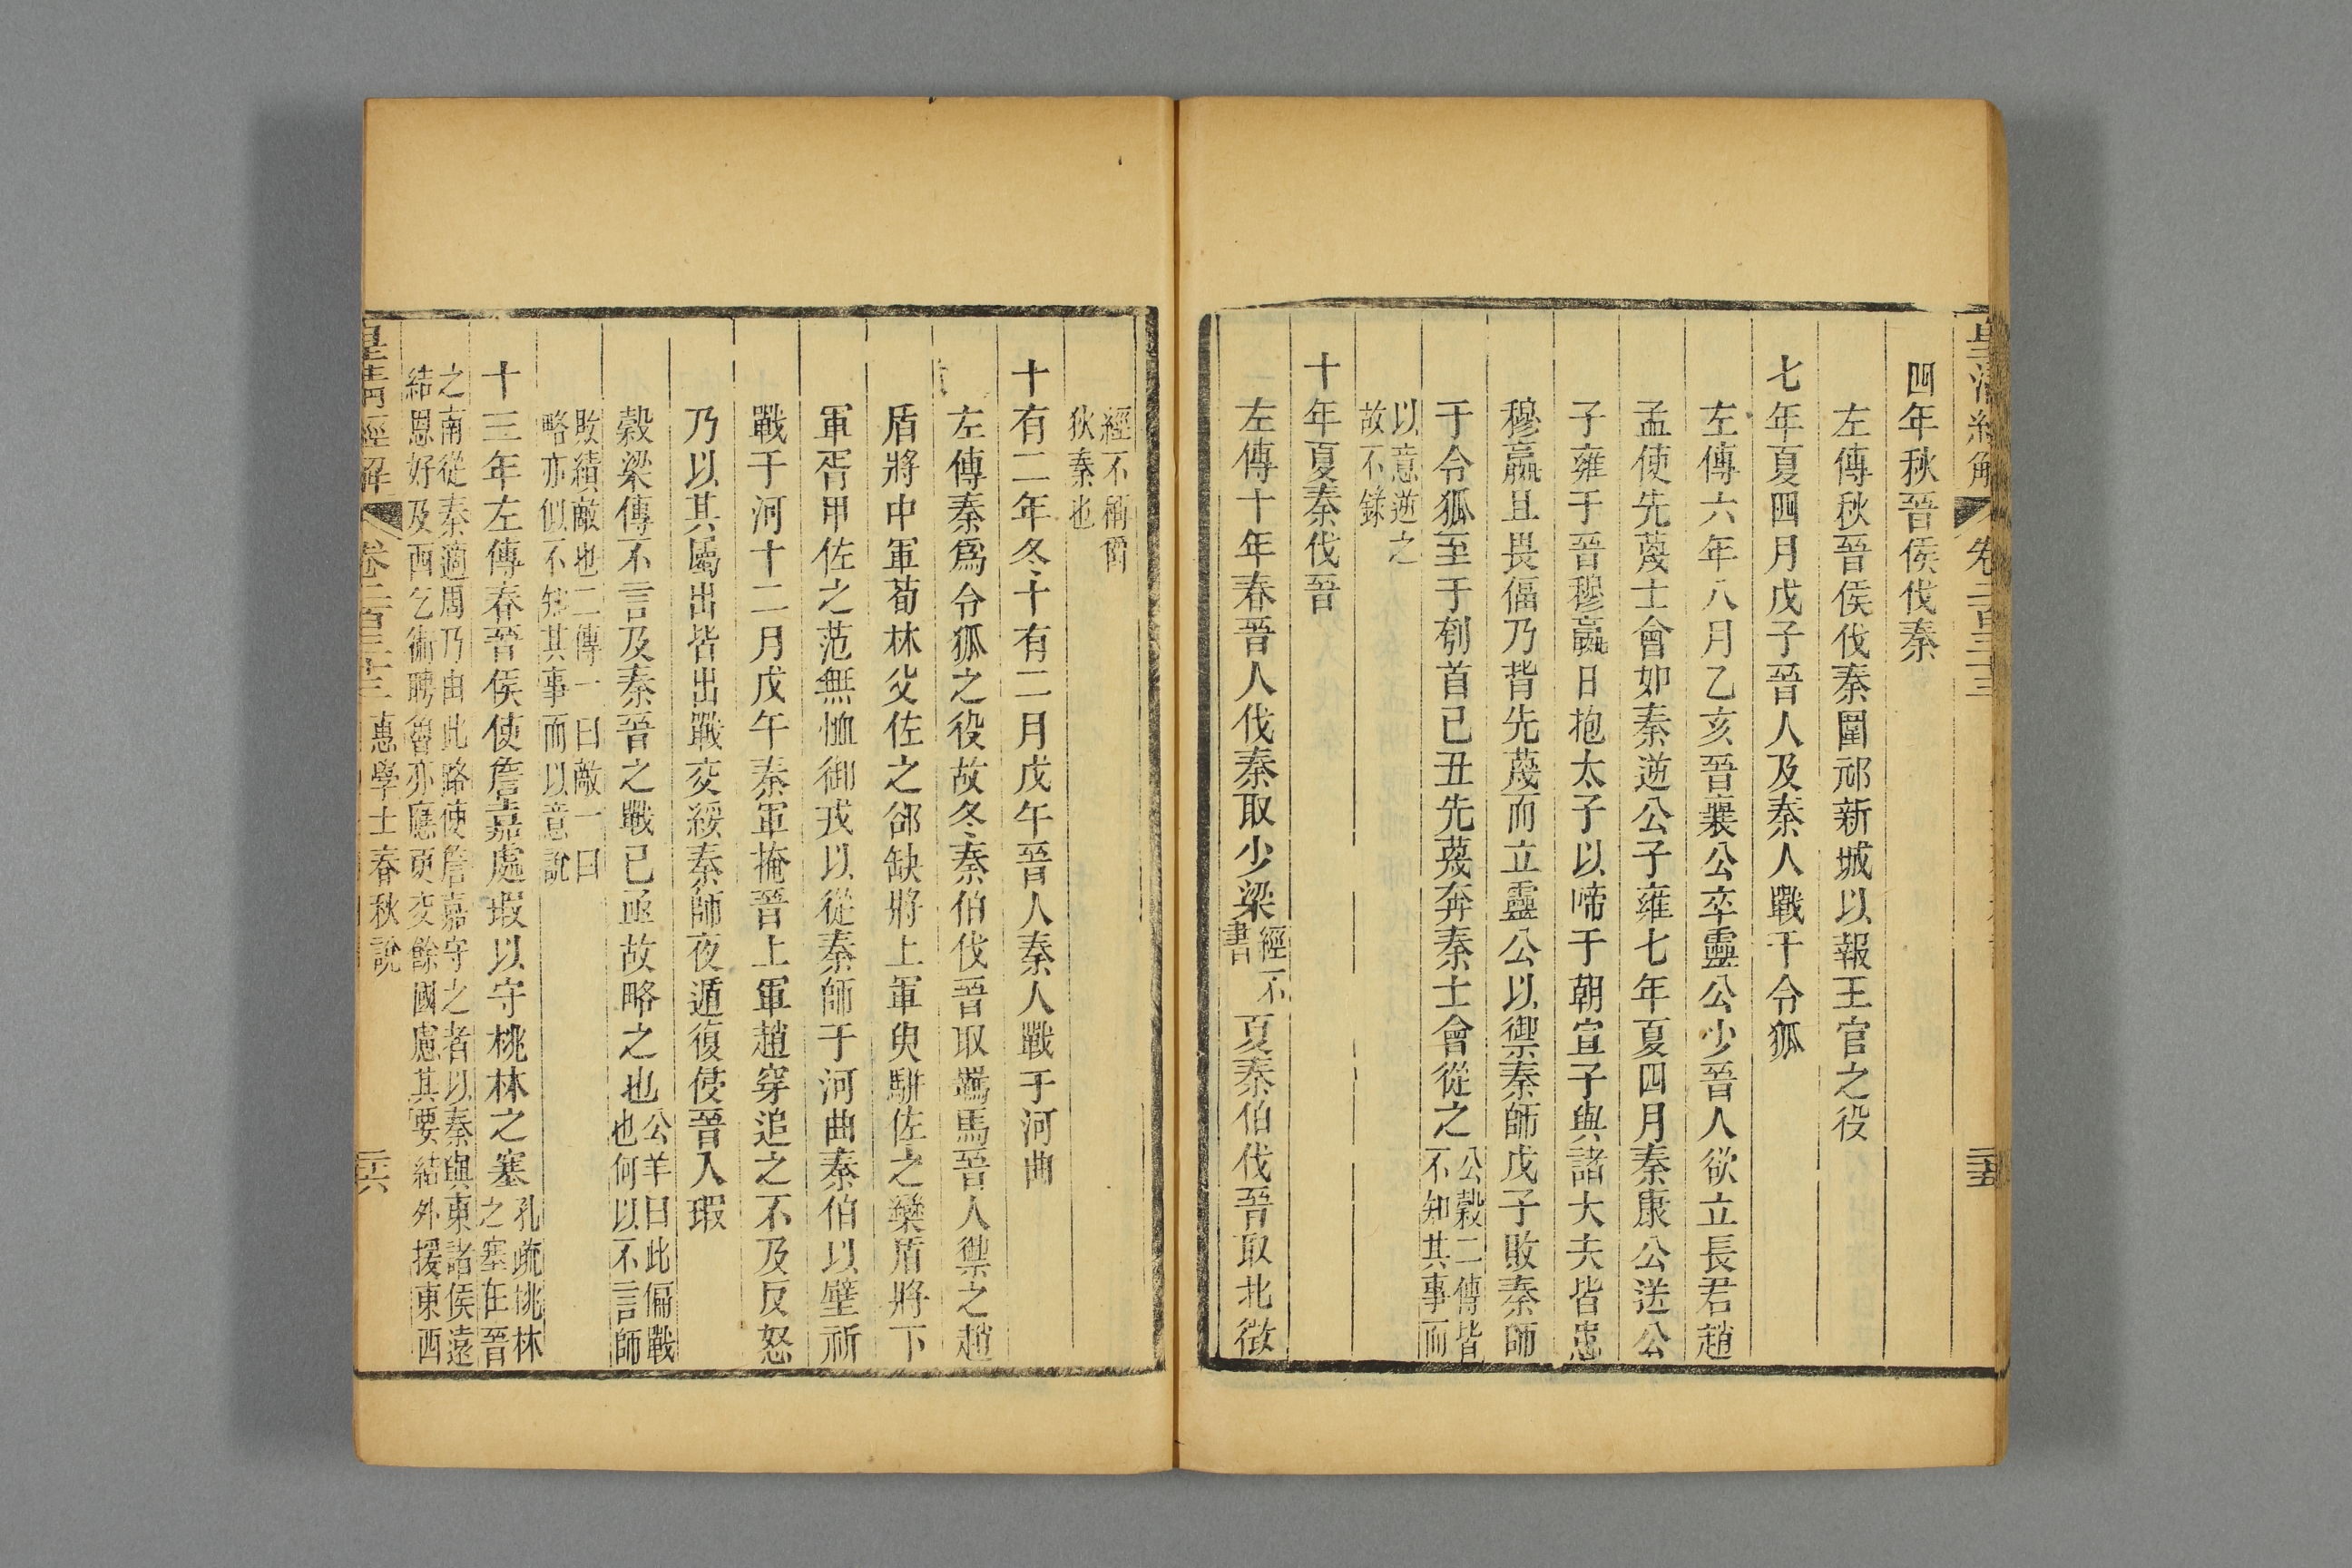 皇清經解 卷二百三十三
四年秋晉侯伐秦
左傳秋晉侯伐秦圍祁新城以報王官之役
七年夏四月戊子晉人及秦人戰于令狐
左傳六年八月乙亥晉襄公卒靈公少晉人欲立長君趙
孟使先蔑士會如秦逆公子雍七年夏四月秦康公送公
子雍于晉穆嬴日抱太子以啼于朝宣子與諸大夫皆患
穆嬴且畏偪乃背先蔑而立靈公以禦秦師戊子敗秦師
于令狐至于刳首己丑先蔑奔秦士會從之
公穀二傳皆
不知其事而
以意逆之
故不錄
十年夏秦伐晉
左傳十年春晉人伐秦取少梁
經不
書
夏秦伯伐晉取北徵
經不稱爵
狄秦也
十有二年冬十有二月戊午晉人秦人戰于河曲
左傳秦爲令狐之役故冬秦伯伐晉取羈馬晉人禦之趙
盾將中軍荀林父佐之郤缺將上軍臾駢佐之欒盾將下
軍胥甲佐之范無恤御戎以從秦師于河曲秦伯以璧祈
戰于河十二月戊午秦軍掩晉上軍趙穿追之不及反怒
乃以其屬出皆出戰交綏秦師夜遁復侵晉入瑕
穀梁傳不言及秦晉之戰已亟故略之也
公羊曰此偏戰
也何以不言師
敗績敵也二傳一曰敵一曰
略亦似不知其事而以意說
十三年左傳春晉侯使詹嘉處瑕以守桃林之塞
孔疏桃林
之塞在晉
之南從秦適周乃由此路使詹嘉守之者以秦與東諸侯遠
結恩好及西乞術聘魯亦應更交餘國慮其要結外援東西
皇清經解 卷二百三十三 惠學士春秋說 二六